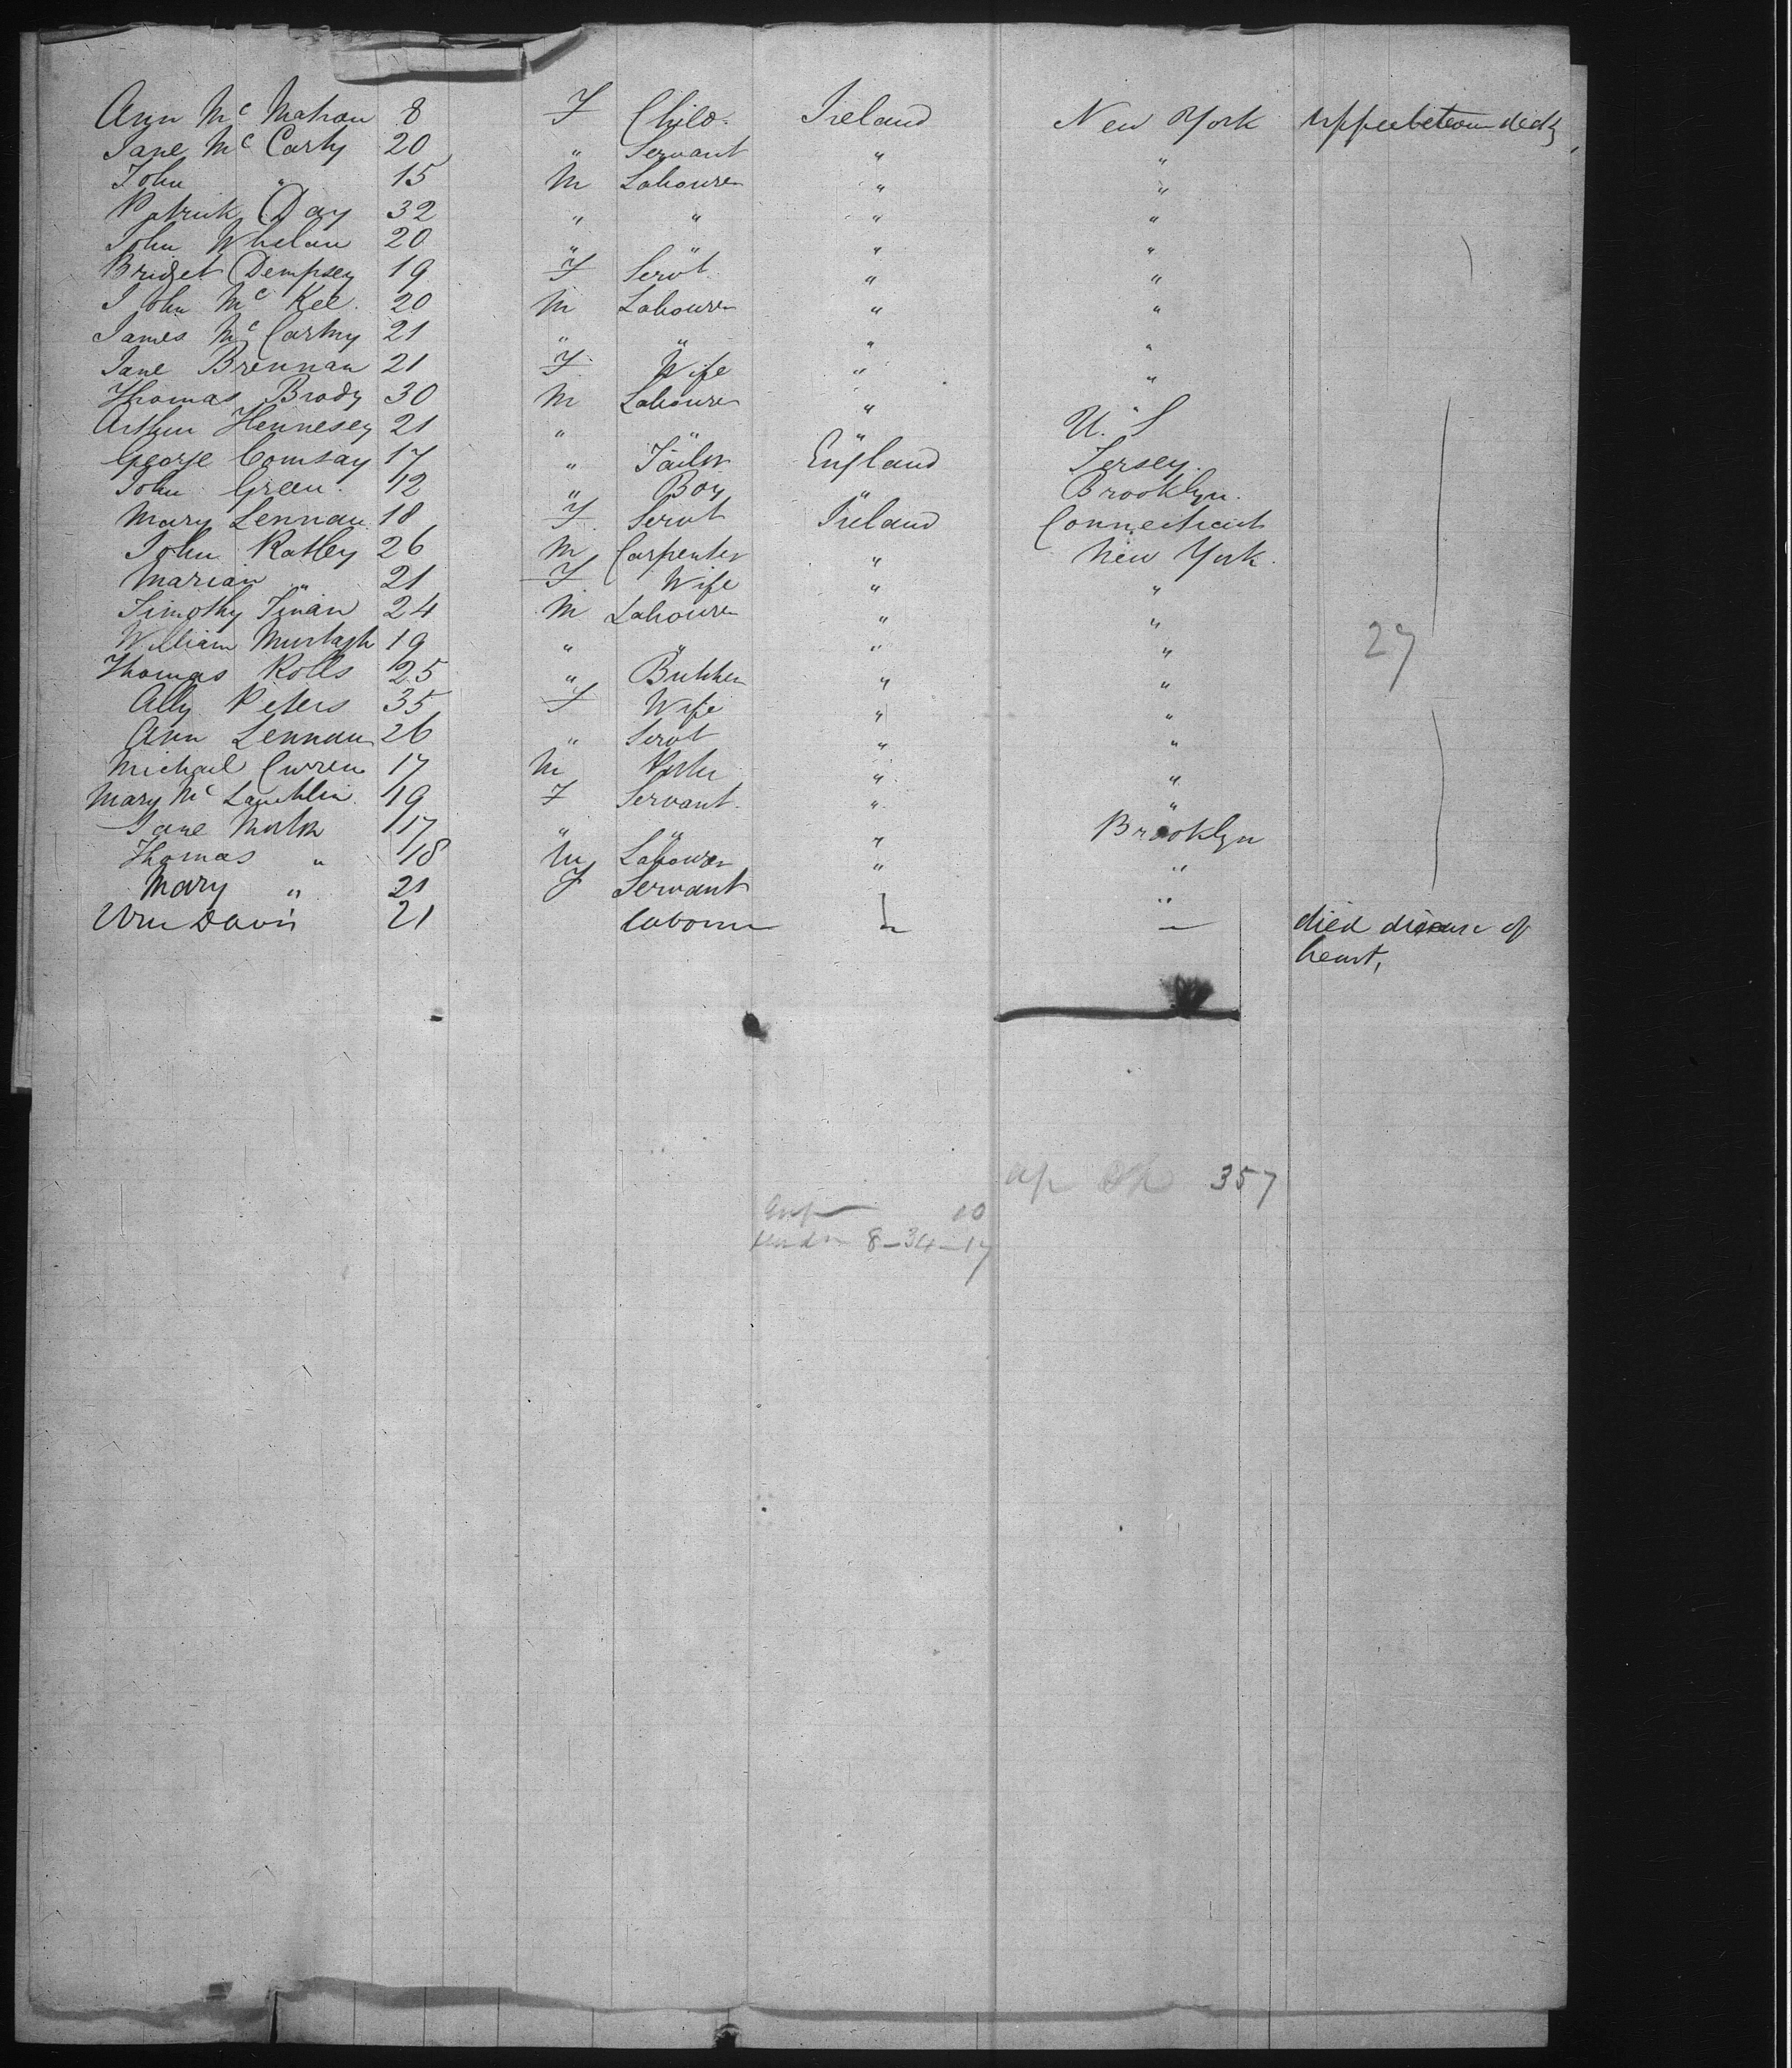 Ann Mc Mahon 8 F Child Ireland New York Upper between decks
Jane Mc Carty 20 " Servant " "
John " 15 M Labourer " "
Patrick Day 32 " " " "
John Whelan 20 " " " "
Bridget Dempsey 19 F Servt " "
John Mc Kee 20 M Labourer " "
James Mc Cartny 21 " " " "
Jane Brennan 21 F Wife " "
Thomas Brody 30 M Labourer " "
Arthur Hennesey 21 " " " U. S
George Comsay 17 " Tailor England Jersey.
John Green 12 " Boy " Brooklyn.
Mary Lennan 18 F Servt Ireland Connecticut
John Ratley 26 M Carpenter " New York.
Marian " 21 F Wife " "
Timothy 24 M Labourer " "
William Murtagh 19 " " " " 27
Thomas Rolls 25 " Butcher " "
Ally Peters 35 F Wife " "
Ann Lennan 26 " Servt " "
Michael Curren 17 M Porter " "
Mary Mc Lauchlin 19 F Servant " "
Jane 17 " " " Brooklyn
Thomas " 18 M Labourer " "
Mary " 21 F Servant "
Wm Davis 21 labourer — died disease of
heart,
357
10
8-34-17